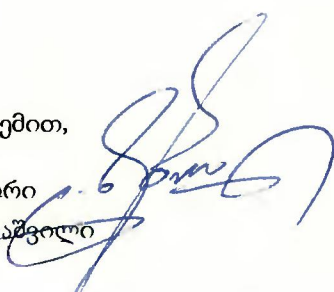 ემით,
რი
აშვილი